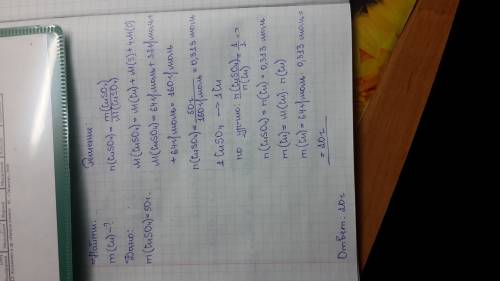 Найти:
m(Cu)-?
Дано:
m(CuSO₄)=50г.
Решение:
n(CuSO₄)= m(CuSO₄) / M(CuSO₄)
M(CuSO₄)=M(Cu)+M(S)+4M(O)
M(CuSO₄)=64г/моль+32г/моль+
+64г/моль=160г/моль
n(CuSO₄)= 50г / 160г/моль = 0,313 моль
1CuSO₄ → 1Cu
по ур-ию: n(CuSO₄) / n(Cu) = 1/1 =>
n(CuSO₄)=n(Cu)=0,313 моль
m(Cu)=M(Cu)·n(Cu)
m(Cu)=64г/моль·0,313 моль
=20г
Ответ: 20г